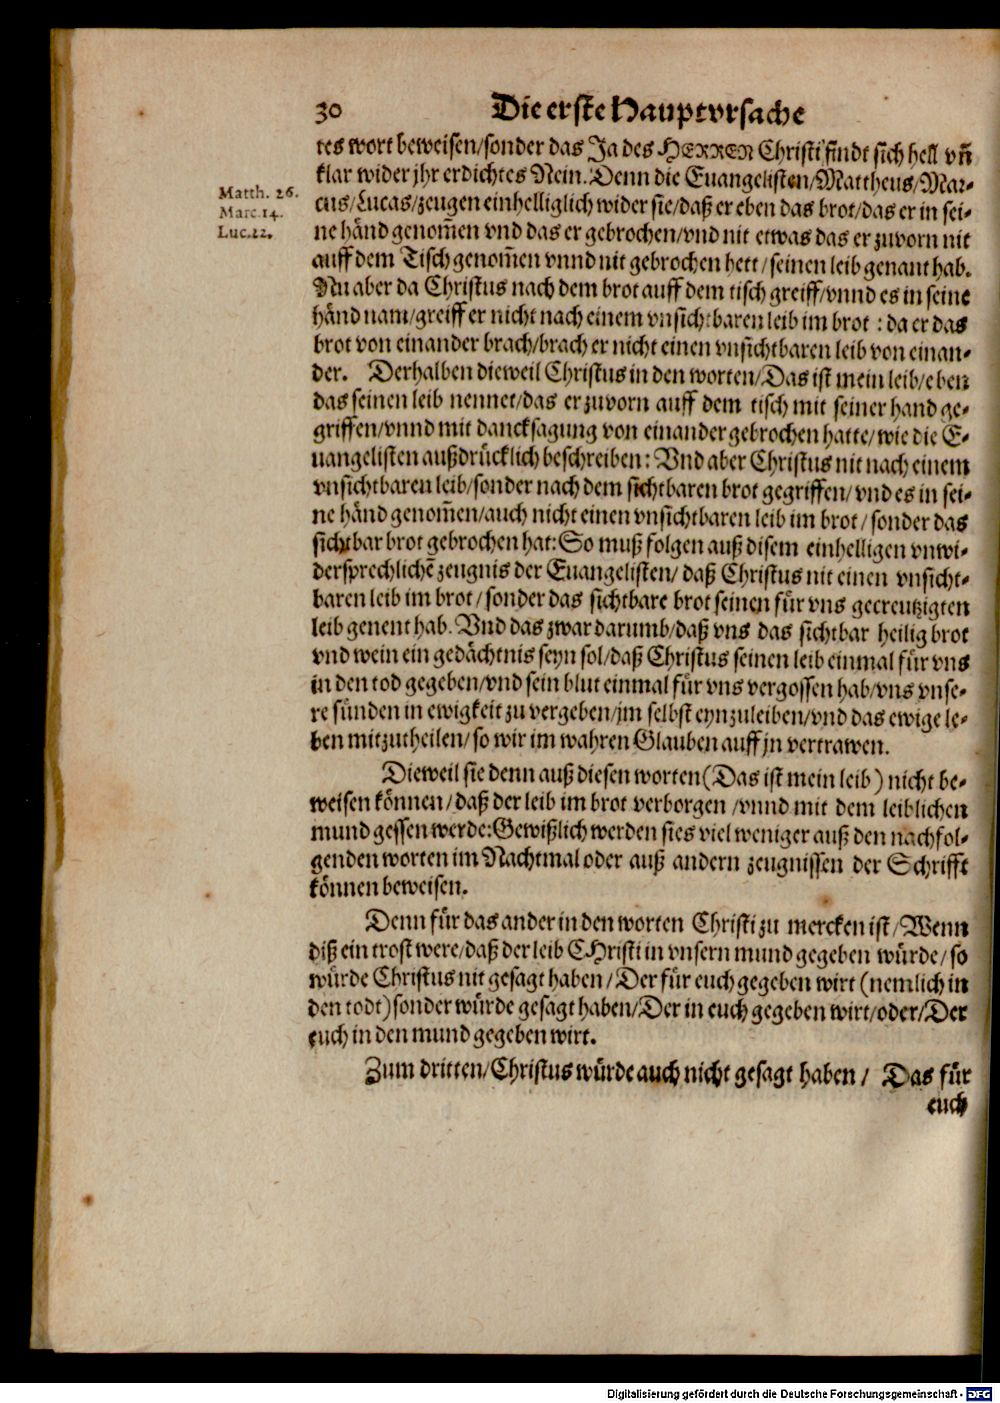 30 Die erste Hauptvrsache
tes wort beweisen/sonder das Ja des HERREN Christi findt sich hell vñ
klar wider jhr erdichtes Nein. Denn die Euangelisten/Mattheus/Mar-
Matth. 26.
Marc. 14.
Luc. 22.
cus/Lucas/zeugen einhelliglich wider sie/daß er eben das brot/das er in sei-
ne händ genom̃en vnd das er gebrochen/vnd nit etwas das er zuvorn nit
auff dem Tisch genom̃en vnnd nit gebrochen hett/seinen leib genant hab.
Nu aber da Christus nach dem brot auff dem tisch greiff/vnnd es in seine
händ nam/greiff er nicht nach einem vnsichtbaren leib im brot : da er das
brot von einander brach/brach er nicht einen vnsichtbaren leib von einan-
der. Derhalben dieweil Christus in den worten/Das ist mein leib/eben
das seinen leib nennet/das er zuvorn auff dem tisch mit seiner hand ge-
griffen/vnnd mit dancksagung von einander gebrochen hatte/wie die E-
uangelisten außdrücklich beschreiben: Vnd aber Christus nit nach einem
vnsichtbaren leib/sonder nach dem sichtbaren brot gegriffen/vnd es in sei-
ne händ genom̃en/auch nicht einen vnsichtbaren leib im brot/sonder das
sichtbar brot gebrochen hat: So muß folgen auß disem einhelligen vnwi-
dersprechlichẽ zeugnis der Euangelisten/daß Christus nit einen vnsicht-
baren leib im brot/sonder das sichtbare brot seinen für vns gecreutzigten
leib genent hab. Vnd das zwar darumb/daß vns das sichtbar heilig brot
vnd wein ein gedächtnis seyn sol/daß Christus seinen leib einmal für vns
in den tod gegeben/vnd sein blut einmal für vns vergossen hab/vns vnse-
re sünden in ewigkeit zu vergeben/jm selbst eynzuleiben/vnd das ewige le-
ben mitzutheilen/so wir im wahren Glauben auff jn vertrawen.
Dieweil sie denn auß diesen worten (Das ist mein leib) nicht be-
weisen können/daß der leib im brot verborgen/vnnd mit dem leiblichen
mund gessen werde: Gewißlich werden sies viel weniger auß den nachfol-
genden worten im Nachtmal oder auß andern zeugnissen der Schrifft
können beweisen.
Denn für das ander in den worten Christi zu mercken ist/Wenn
diß ein trost were/daß der leib CHristi in vnsern mund gegeben würde/so
würde Christus nit gesagt haben/Der für euch gegeben wirt (nemlich in
den todt) sonder würde gesagt haben/Der in euch gegeben wirt/oder/Der
euch in den mund gegeben wirt.
Zum dritten/Christus würde auch nicht gesagt haben/ Das für
euch
Digitalisierung gefördert durch die Deutsche Forschungsgemeinschaft - DFG